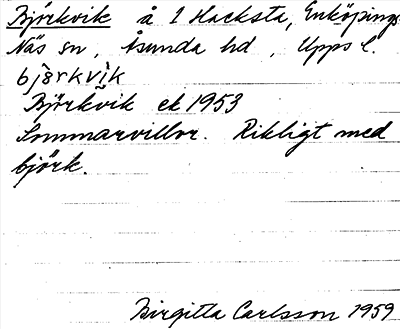 Björkvik å 1 Hacksta, Enköpings-
Näs sn, Åsunda hd, Upps l.
bjö̀rkvìk
Björkvik ek 1953
Sommarvillor. Rikligt med
björk.
Birgitta Carlsson 1959